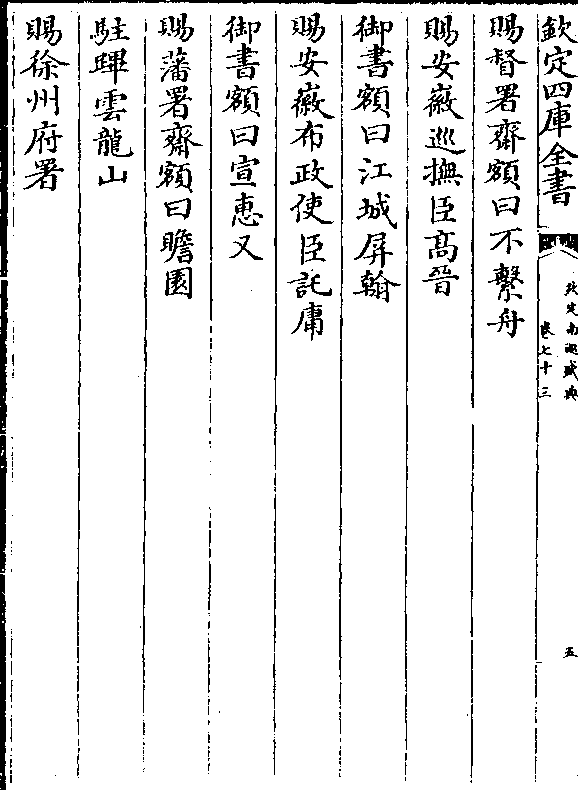 欽定四庫全書
欽定南巡盛典
卷七十三
五
賜督署齋額曰不繫舟
賜安徽巡撫臣高晉
御書額曰江城屏翰
賜安徽布政使臣託庸
御書額曰宣惠又
賜藩署齋額曰瞻園
駐蹕雲龍山
賜徐州府署